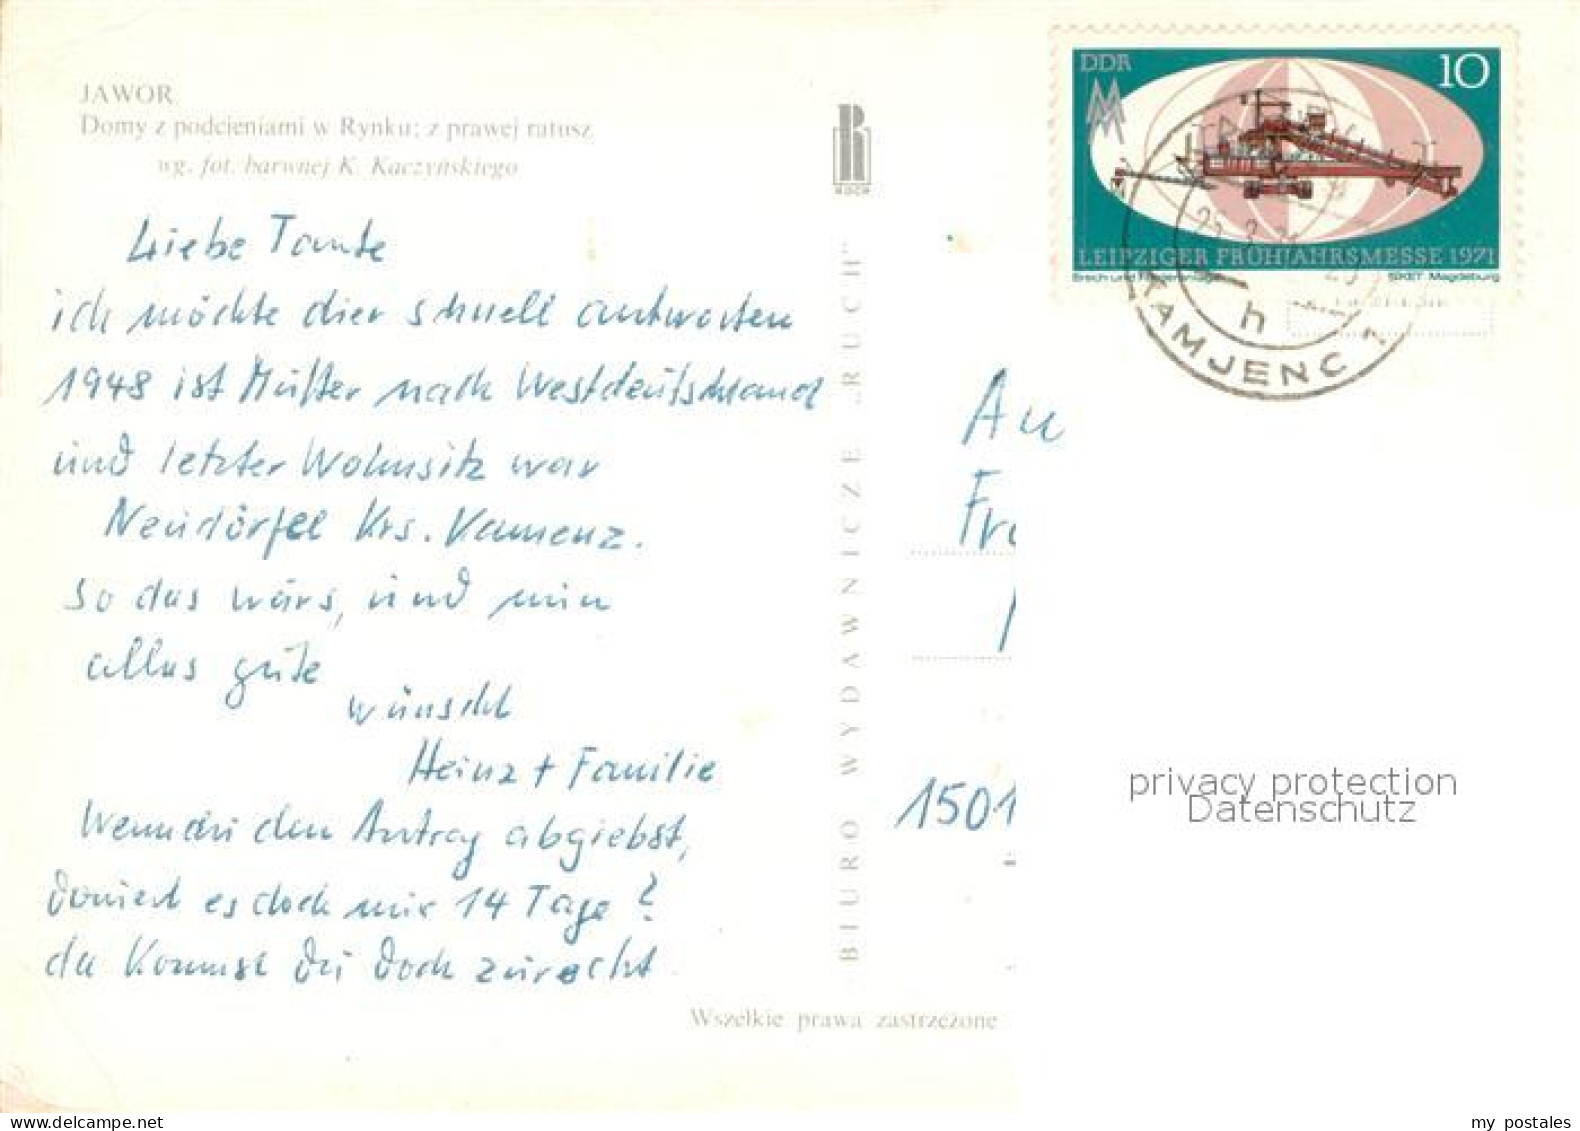 JAWOR
Domy z podcieniami w Rynku; z prawej ratusz
wg. fot. barwnej K. Kaczyńskiego
Liebe Tante
ich möchte dier schnell antworten
1948 ist Mutter nach Westdeutschland
und letzter Wohnsitz war
Neudörfel Krs. Kamenz.
So das wärs, und nun
alles gute
wünscht
Heinz + Familie
Wenn du den Antrag abgiebst,
dauert es doch nur 14 Tage?
da kommst du doch zurecht
BIURO WYDAWNICZE „RUCH"
RUCH
Wszelkie prawa zastrzeżone
DDR
MM
10
LEIPZIGER FRÜHJAHRSMESSE 1971
SIKET Magdeburg
h
KAMJENC 1
An
1501
privacy protection
Datenschutz
my postales